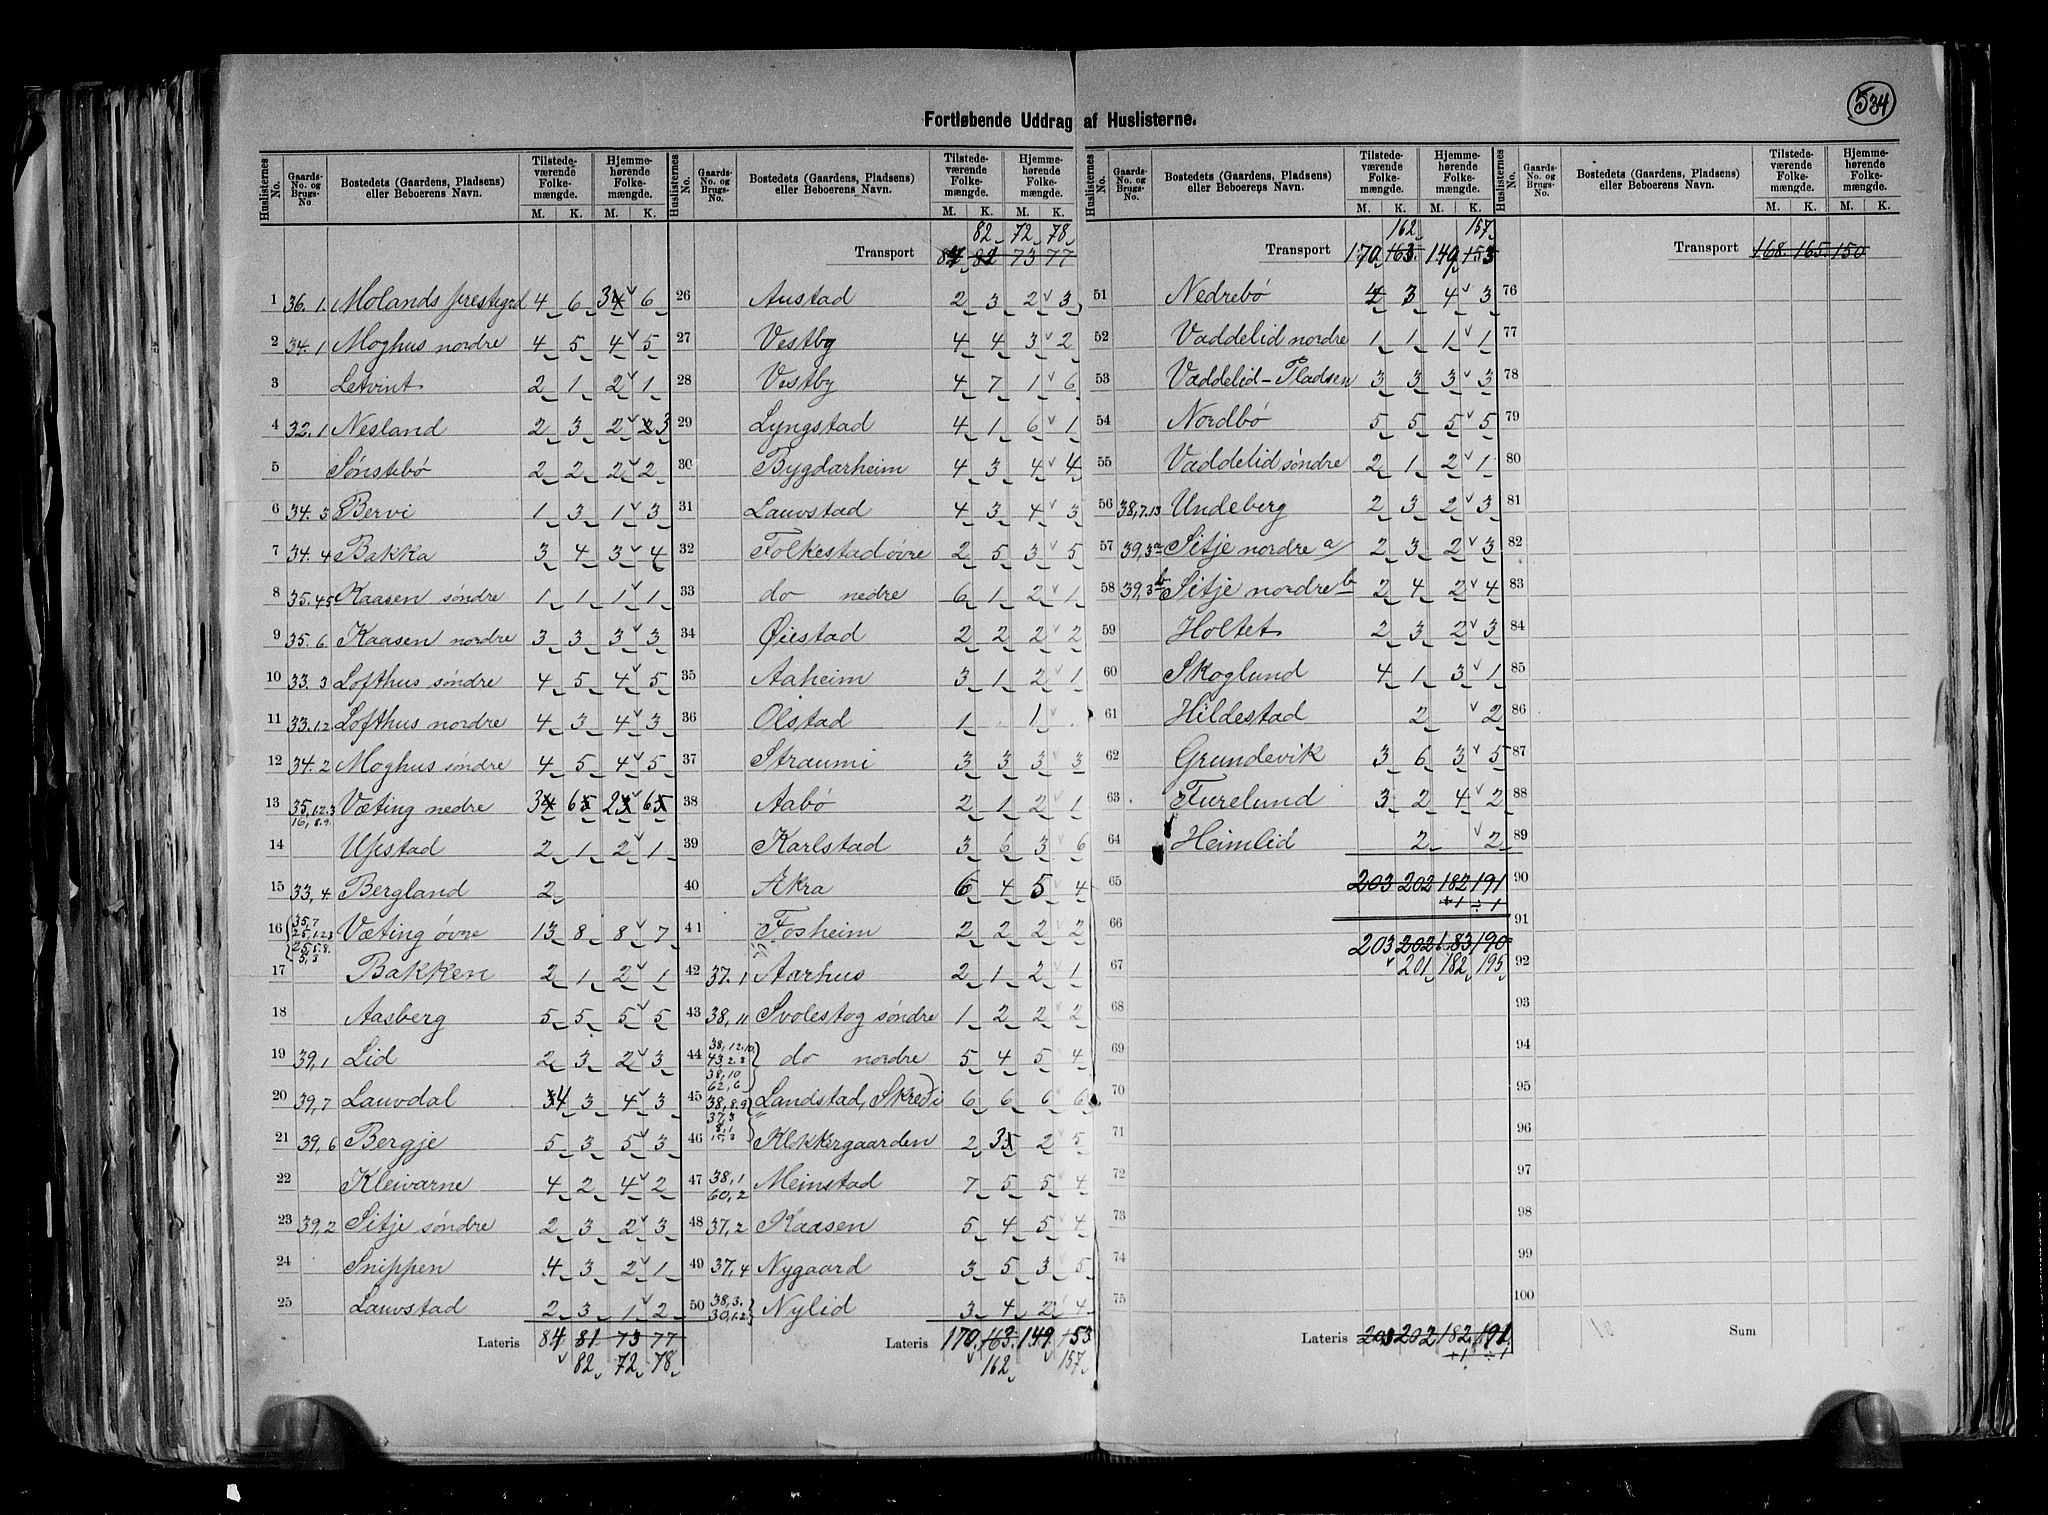 534
Fortløbende Uddrag af Huslisterne.
Huslisternes No. | Gaards-No. og Brugs-No. | Bostedets (Gaardens, Pladsens) eller Beboerens Navn. | Tilstedeværende Folkemængde. M. K. | Hjemmehørende Folkemængde. M. K.
1 36.1. Molands prestegrd 4 6 3 6
2 34.1 Moghus nordre 4 5 4 5
3 Letvint 2 1 2 1
4 32.1 Nesland 2 3 2 3
5 Sønstebø 2 2 2 2
6 34.5 Bervi 1 3 1 3
7 34.4 Bakka 3 4 3 4
8 35.45 Kaasen søndre 1 1 1 1
9 35.6 Kaasen nordre 3 3 3 3
10 33.3 Lofthus søndre 4 5 4 5
11 33.1.2 Lofthus nordre 4 3 4 3
12 34.2 Moghus søndre 4 5 4 5
13 35,1.2.3 16,8.9. Væting nedre 3 6 2 6
14 Upstad 2 1 2 1
15 33,4 Bergland 2
16 35,7 25,1.2.3 25,5.8. 5,3 Væting øvre 13 8 8 7
17 Bakken 2 1 2 1
18 Aasberg 5 5 5 5
19 39,1 Lid 2 3 2 3
20 39,7 Lauvdal 4 3 4 3
21 39,6 Bergje 5 3 5 3
22 Kleivarne 4 2 4 2
23 39,2 Sitje søndre 2 3 2 3
24 Snippen 4 3 2 1
25 Lauvstad 2 3 1 2
Lateris 84 81 73 77
82 72 78
82 72 78
Transport 84 82 73 77
26 Austad 2 3 2 3
27 Vestby 4 4 3 2
28 Vestby 4 7 1 6
29 Lyngstad 4 1 6 1
30 Bygdarheim 4 3 4 4
31 Lauvstad 4 3 4 3
32 Folkestad øvre 2 5 3 5
33 do nedre 6 1 2 1
34 Øiestad 2 2 2 2
35 Aaheim 3 1 2 1
36 Olstad 1 1
37 Straumi 3 3 3 3
38 Aabø 2 1 2 1
39 Karlstad 3 6 3 6
40 Akra 6 4 5 4
41 Fosheim 2 2 2 2
42 37.1 Aarhus 2 1 2 1
43 38,11 Svolestog søndre 1 2 2 2
44 38,12.10. 43 2.3 38,10 62,6 do nordre 5 4 5 4
45 38,8.9 37,3 Landstad, Skredi 6 6 6 6
46 8,1 15,3 Klokkergaarden 2 3 2 5
47 38,1 60,2 Meinstad 7 5 5 4
48 37,2 Kaasen 5 4 5 4
49 37,4 Nygaard 3 5 3 5
50 38,3. 30,1.2 Nylid 3 4 2 4
Lateris 170 163 149 153
162 157
162 157
Transport 170 163 149 153
51 Nedrebø 4 3 4 3
52 Vaddelid nordre 1 1 1 1
53 Vaddelid-Pladsen 3 3 3 3
54 Nordbø 5 5 5 5
55 Vaddelid søndre 2 1 2 1
56 38,7.13 Undeberg 2 3 2 3
57 39,3a Sitje nordre a 2 3 2 3
58 39,3b Sitje nordre b 2 4 2 4
59 Holtet 2 3 2 3
60 Skoglund 4 1 3 1
61 Hildestad 2 2
62 Grundevik 3 6 3 5
63 Furelund 3 2 4 2
64 Heimlid 2 2
65 203 202 182 191
+1 ÷1
66 203 202 183 190
67 201 182 195
68
69
70
71
72
73
74
75
Lateris 203 202 182 191
+1 ÷1
Transport 168 165 150
76
77
78
79
80
81
82
83
84
85
86
87
88
89
90
91
92
93
94
95
96
97
98
99
100
Sum